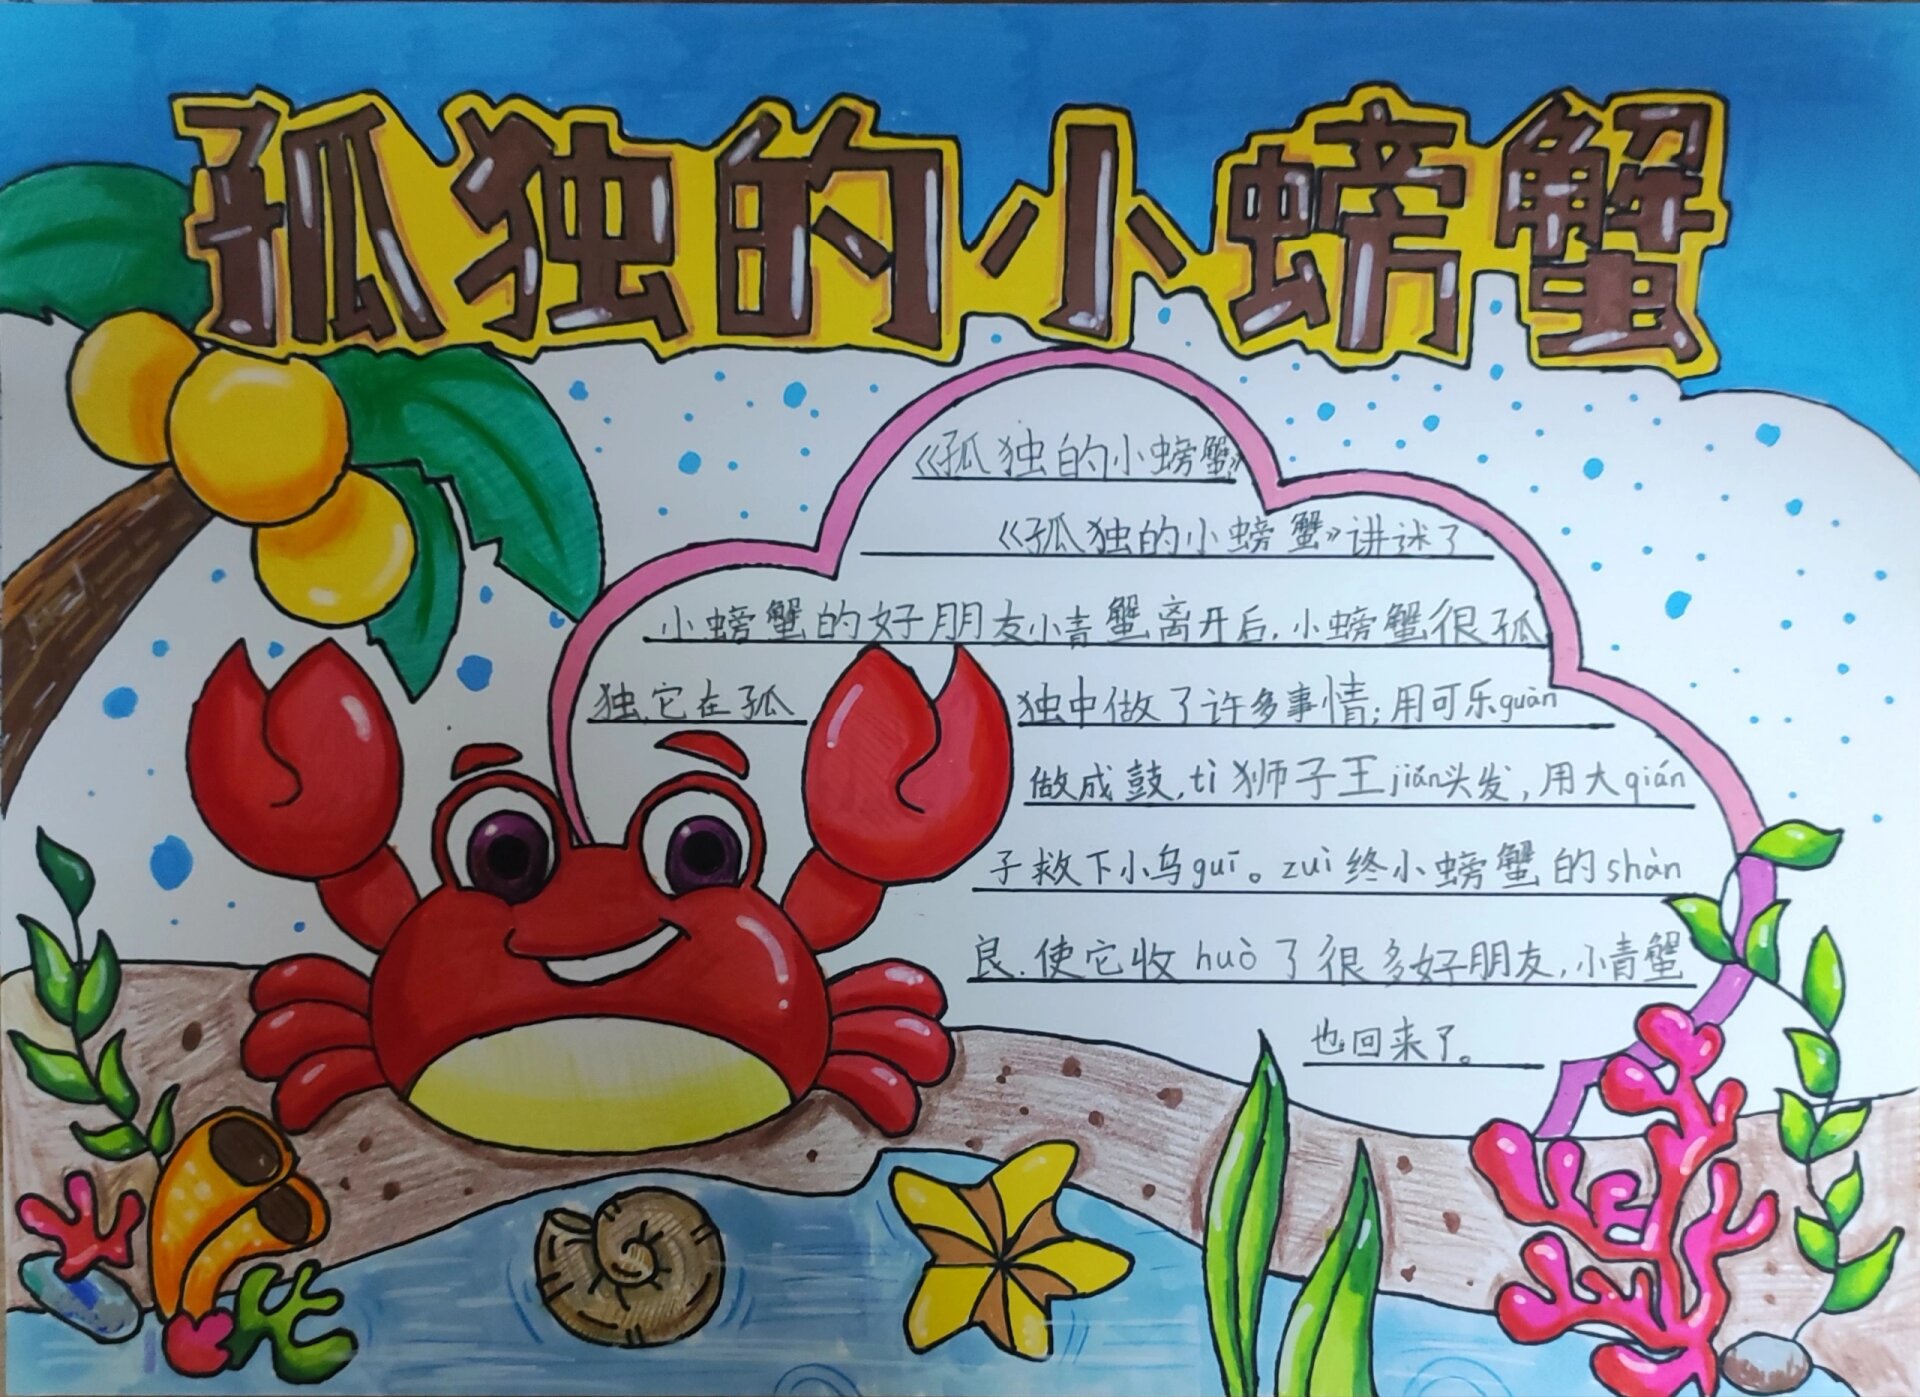 孤独的小螃蟹
《孤独的小螃蟹》
《孤独的小螃蟹》讲述了
小螃蟹的好朋友小青蟹离开后,小螃蟹很孤
独,它在孤 独中做了许多事情;用可乐guàn
做成鼓,tì狮子王jiǎn头发,用大qián
子救下小乌guī。zuì终小螃蟹的shàn
良.使它收huò了很多好朋友,小青蟹
也回来了。